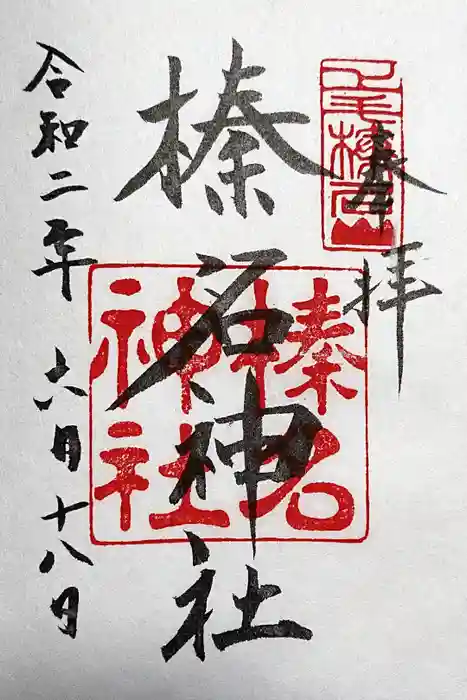 奉拝
榛名神社
令和二年六月十八日
榛名
神社